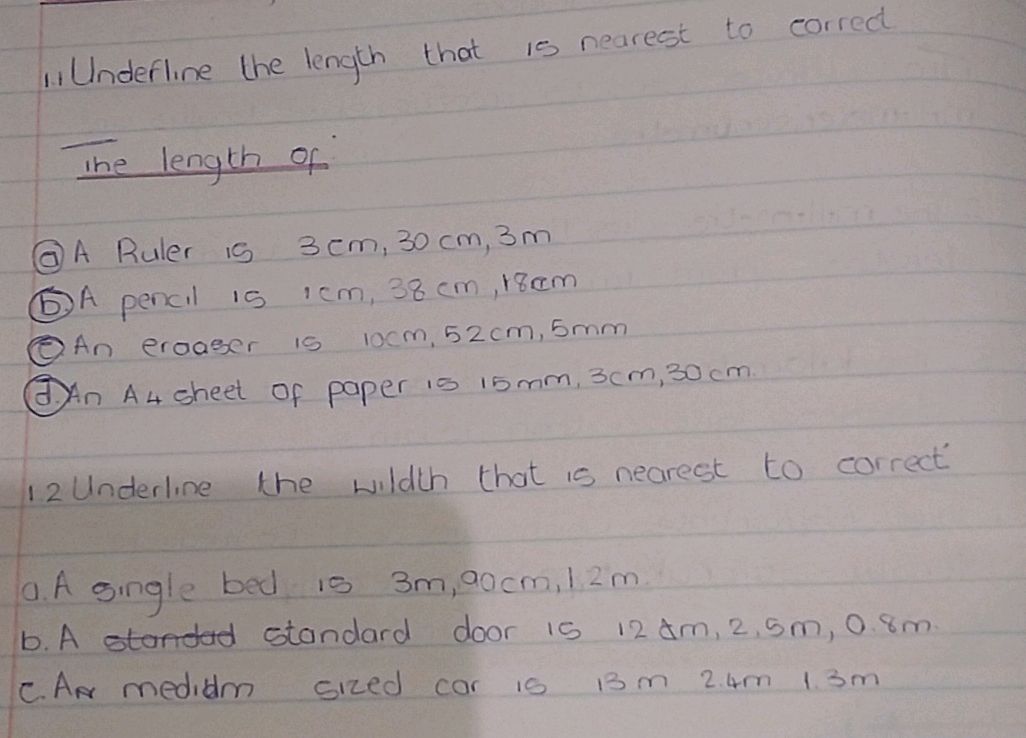 1.1 Underline the length that is nearest to correct
The length of:
ⓐ A Ruler is 3cm, 30cm, 3m
ⓑ A pencil is 1cm, 38cm, 18cm
ⓒ An eroaser is 10cm, 52cm, 5mm
ⓓ An A4 sheet of paper is 15mm, 3cm, 30cm.
1.2 Underline the wildth that is nearest to correct
a. A single bed is 3m, 90cm, 1.2m
b. A standad standard door is 12 m, 2.5m, 0.8m.
c. A medium sized car is 13m 2.4m 1.3m